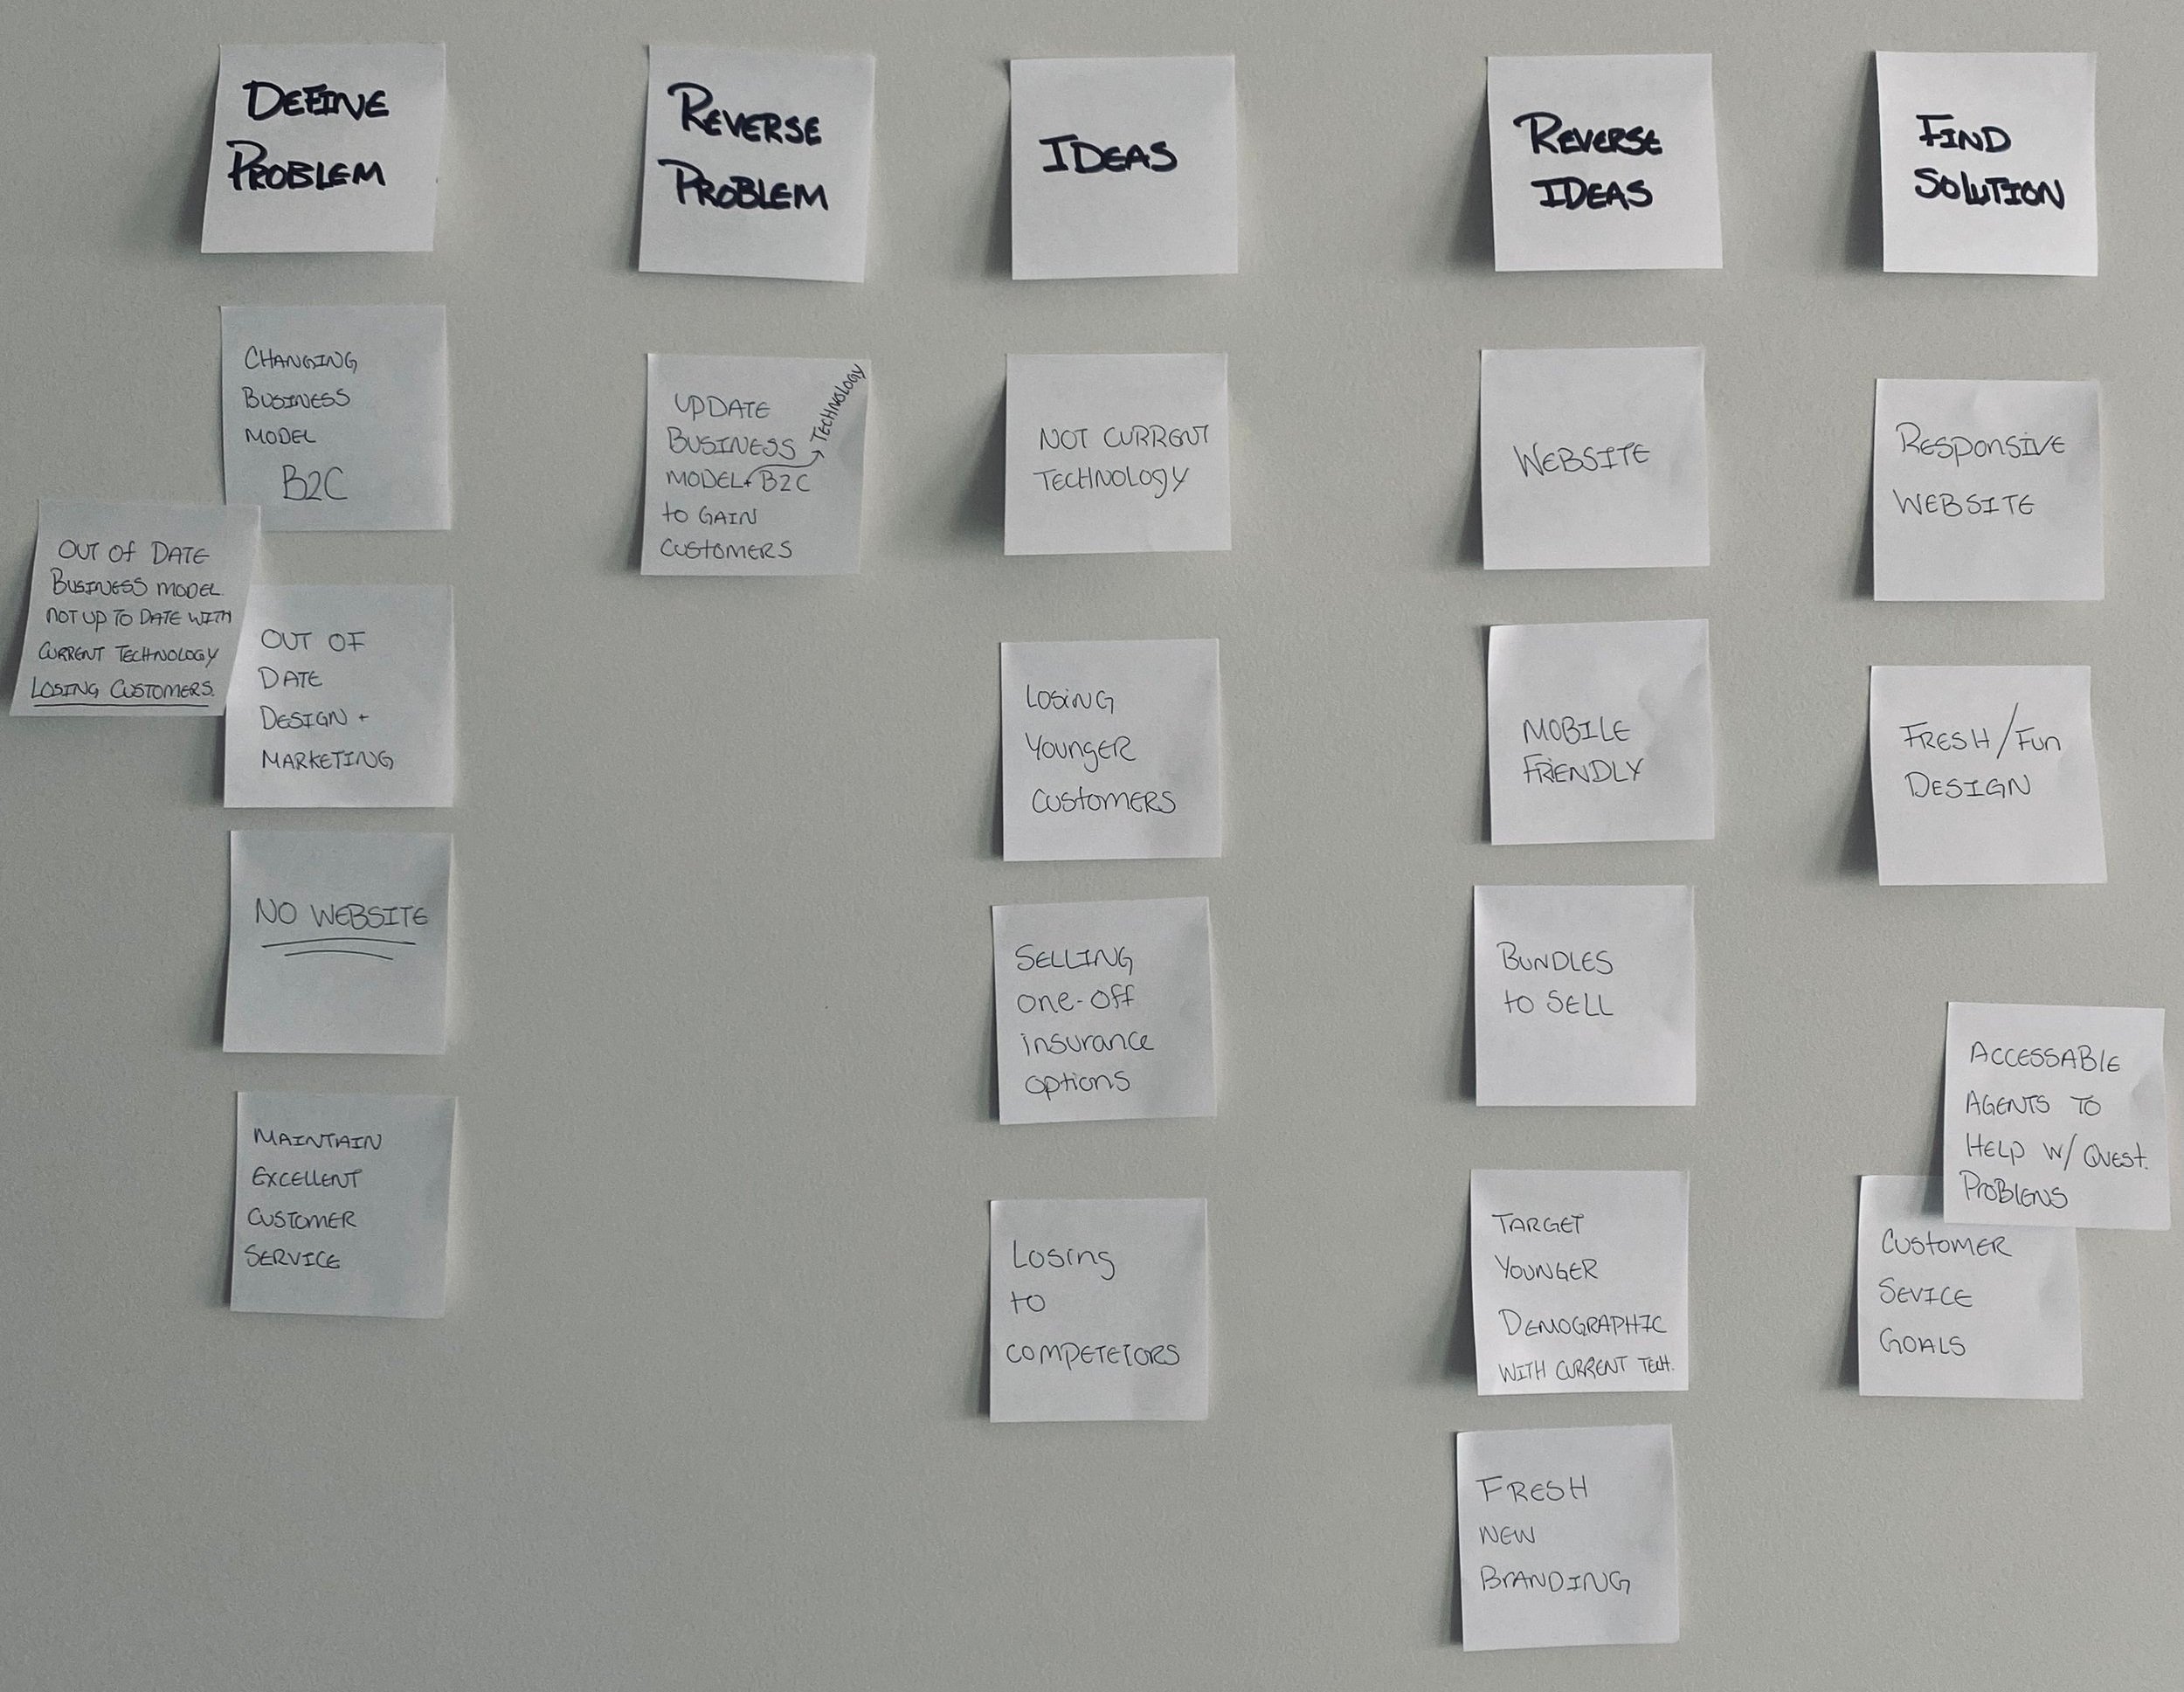 DEFINE
PROBLEM
CHANGING
BUSINESS
MODEL
B2C
OUT OF DATE
BUSINESS MODEL
NOT UP TO DATE WITH
CURRENT TECHNOLOGY
LOSING CUSTOMERS.
OUT OF
DATE
DESIGN +
MARKETING
NO WEBSITE
MAINTAIN
EXCELLENT
CUSTOMER
SERVICE
REVERSE
PROBLEM
UPDATE
BUSINESS
MODEL + B2C
TECHNOLOGY
to GAIN
CUSTOMERS
IDEAS
NOT CURRENT
TECHNOLOGY
LOSING
YOUNGER
CUSTOMERS
SELLING
one-off
insurance
options
Losing
to
COMPETETORS
REVERSE
IDEAS
WEBSITE
MOBILE
FRIENDLY
BUNDLES
to SELL
TARGET
YOUNGER
DEMOGRAPHIC
WITH CURRENT TECH.
FRESH
NEW
BRANDING
FIND
SOLUTION
RESPONSIVE
WEBSITE
FRESH/FUN
DESIGN
ACCESSABLE
AGENTS TO
HELP W/ QUEST.
PROBLEMS
CUSTOMER
SEVICE
GOALS